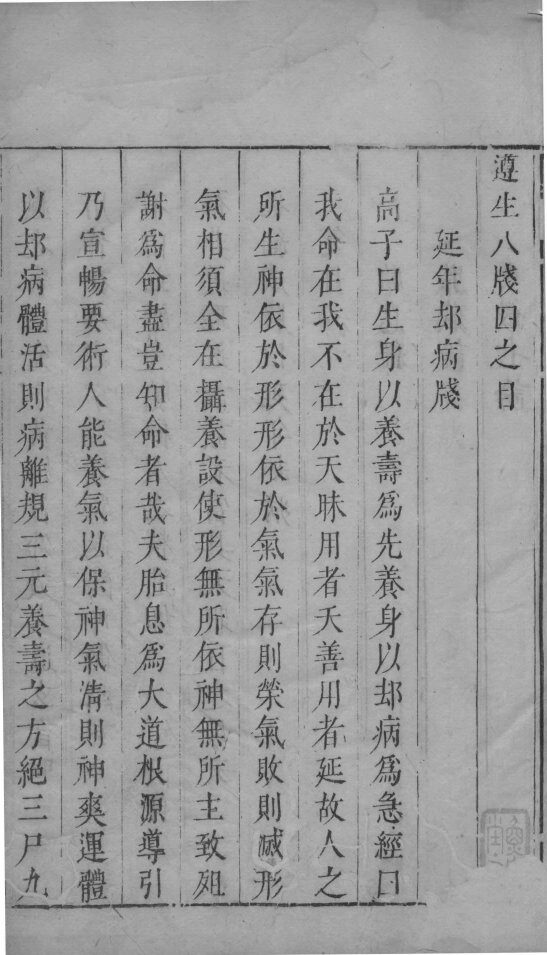 遵生八牋四之目
延年却病牋
高子曰生身以養壽爲先養身以却病爲急經曰
我命在我不在於天昧用者夭善用者延故人之
所生神依於形形依於氣氣存則榮氣敗則滅形
氣相須全在攝養設使形無所依神無所主致殂
謝爲命盡豈知命者哉夫胎息爲大道根源導引
乃宣暢要術人能養氣以保神氣清則神爽運體
以却病體活則病離規三元養壽之方絕三尸九